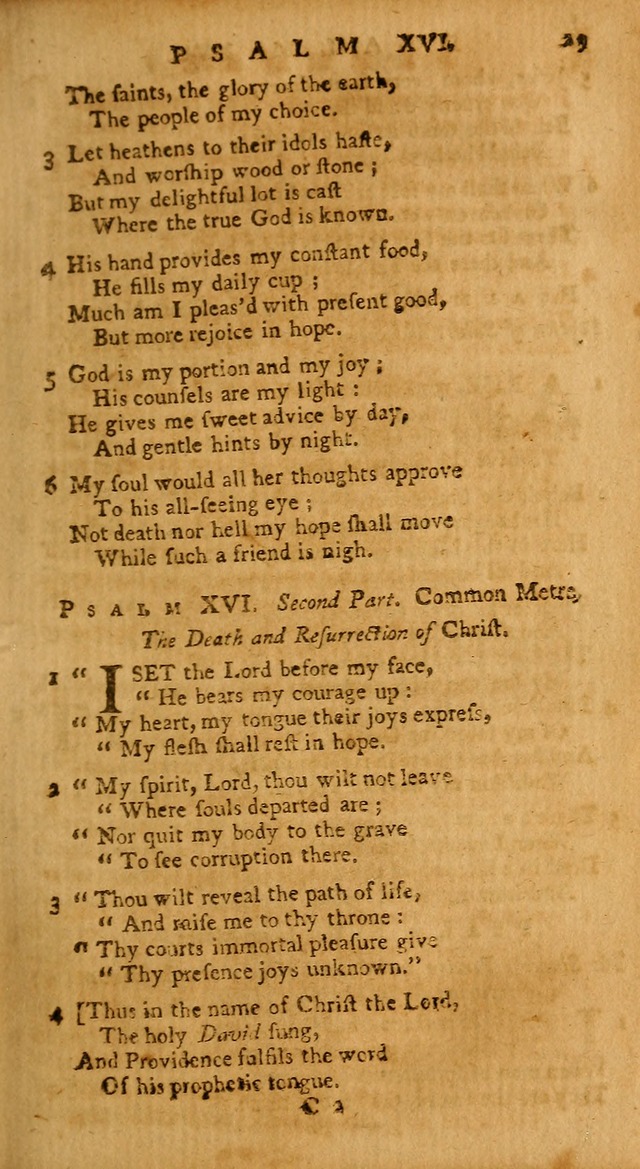 PSALM XVI. 29
The ſaints, the glory of the earth,
The people of my choice.
3 Let heathens to their idols haſte,
And worſhip wood or ſtone ;
But my delightful lot is caſt
Where the true God is known.
4 His hand provides my conſtant food,
He fills my daily cup ;
Much am I pleas'd with preſent good,
But more rejoice in hope.
5 God is my portion and my joy ;
His counſels are my light :
He gives me ſweet advice by day,
And gentle hints by night.
6 My ſoul would all her thoughts approve
To his all-ſeeing eye ;
Not death nor hell my hope ſhall move
While ſuch a friend is nigh.
PSALM XVI. Second Part. Common Metre,
The Death and Reſurrection of Chriſt.
1 “ I SET the Lord before my face,
“ He bears my courage up :
“ My heart, my tongue their joys expreſs,
“ My fleſh ſhall reſt in hope.
2 “ My ſpirit, Lord, thou wilt not leave
“ Where ſouls departed are ;
“ Nor quit my body to the grave
“ To ſee corruption there.
3 “ Thou wilt reveal the path of life,
“ And raiſe me to thy throne :
“ Thy courts immortal pleaſure give
“ Thy preſence joys unknown.”
4 [Thus in the name of Chriſt the Lord,
The holy David ſung,
And Providence fulfils the word
Of his prophetic tongue.
C 2